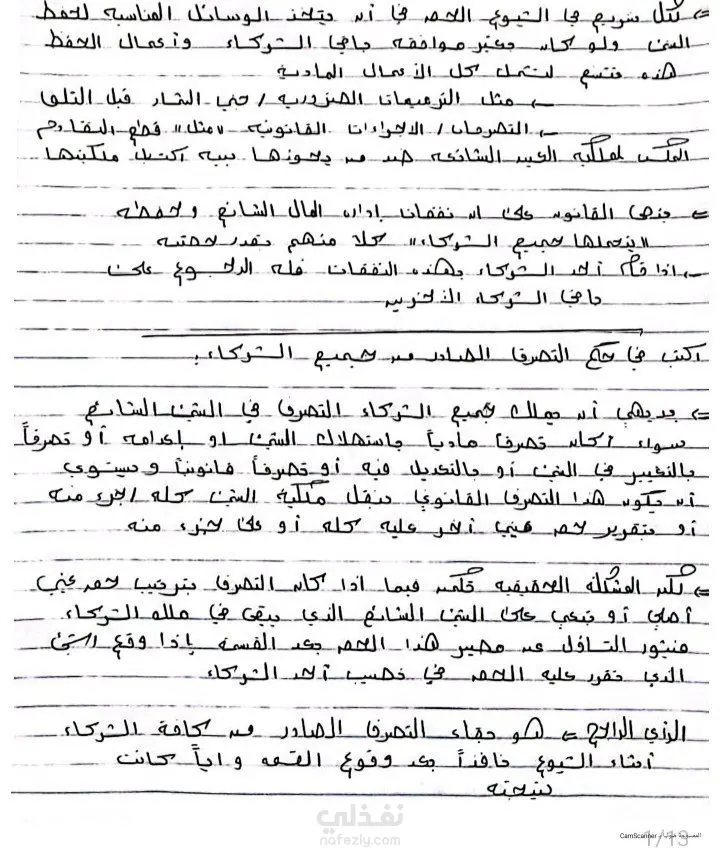 ⇐ لكل شريك في الشيوع الحق في أن يتخذ الوسائل المناسبة لحفظ
الشئ ولو كان بغير موافقة باقي الشركاء وأعمال الحفظ
هذه تتسع لتشمل كل الأعمال المادية
← مثل الترميمات الضرورية / جني الثمار قبل التلف
← التصرفات / الاجراءات القانونية "مثل" قطع التقادم
المكسب لملكية العين الشائعة ضد من يحوزها بنية اكتساب ملكيتها
⇐ ينص القانون على ان نفقات إدارة المال الشائع وحفظه
"يتحملها جميع الشركاء" كلا منهم بقدر حصته
← اذا قام أحد الشركاء بهذه النفقات فله الرجوع على
باقي الشركاء الآخرين
اكتب في حكم التصرف الصادر من جميع الشركاء :
⇐ بديهي أن يملك جميع الشركاء التصرف في الشئ الشائع
سواء أكان تصرفا مادياً باستهلاك الشئ او إعدامه أو تصرفاً
بالتغيير في الشئ أو بالتعديل فيه أو تصرفاً قانونياً ويستوي
أن يكون هذا التصرف القانوني بنقل ملكية الشئ كله / جزء منه
أو بتقرير حق عيني أخر عليه كله أو على جزء منه
⇐ لكن المشكلة الحقيقية تكمن فيما اذا كان التصرف بترتيب حق عيني
أصلي أو تبعي على الشئ الشائع الذي يبقى في ملك الشركاء
فيثور التساؤل عن مصير هذا الحق بعد القسمة إذا وقع الشئ
الذي تقرر عليه الحق في نصيب أحد الشركاء
الرأي الراجح ⇐ هو بقاء التصرف الصادر من كافة الشركاء
أثناء الشيوع نافذاً بعد وقوع القسمة واياً كانت
نتيجته
نفذلي
nafezly.com
CamScanner
1/13